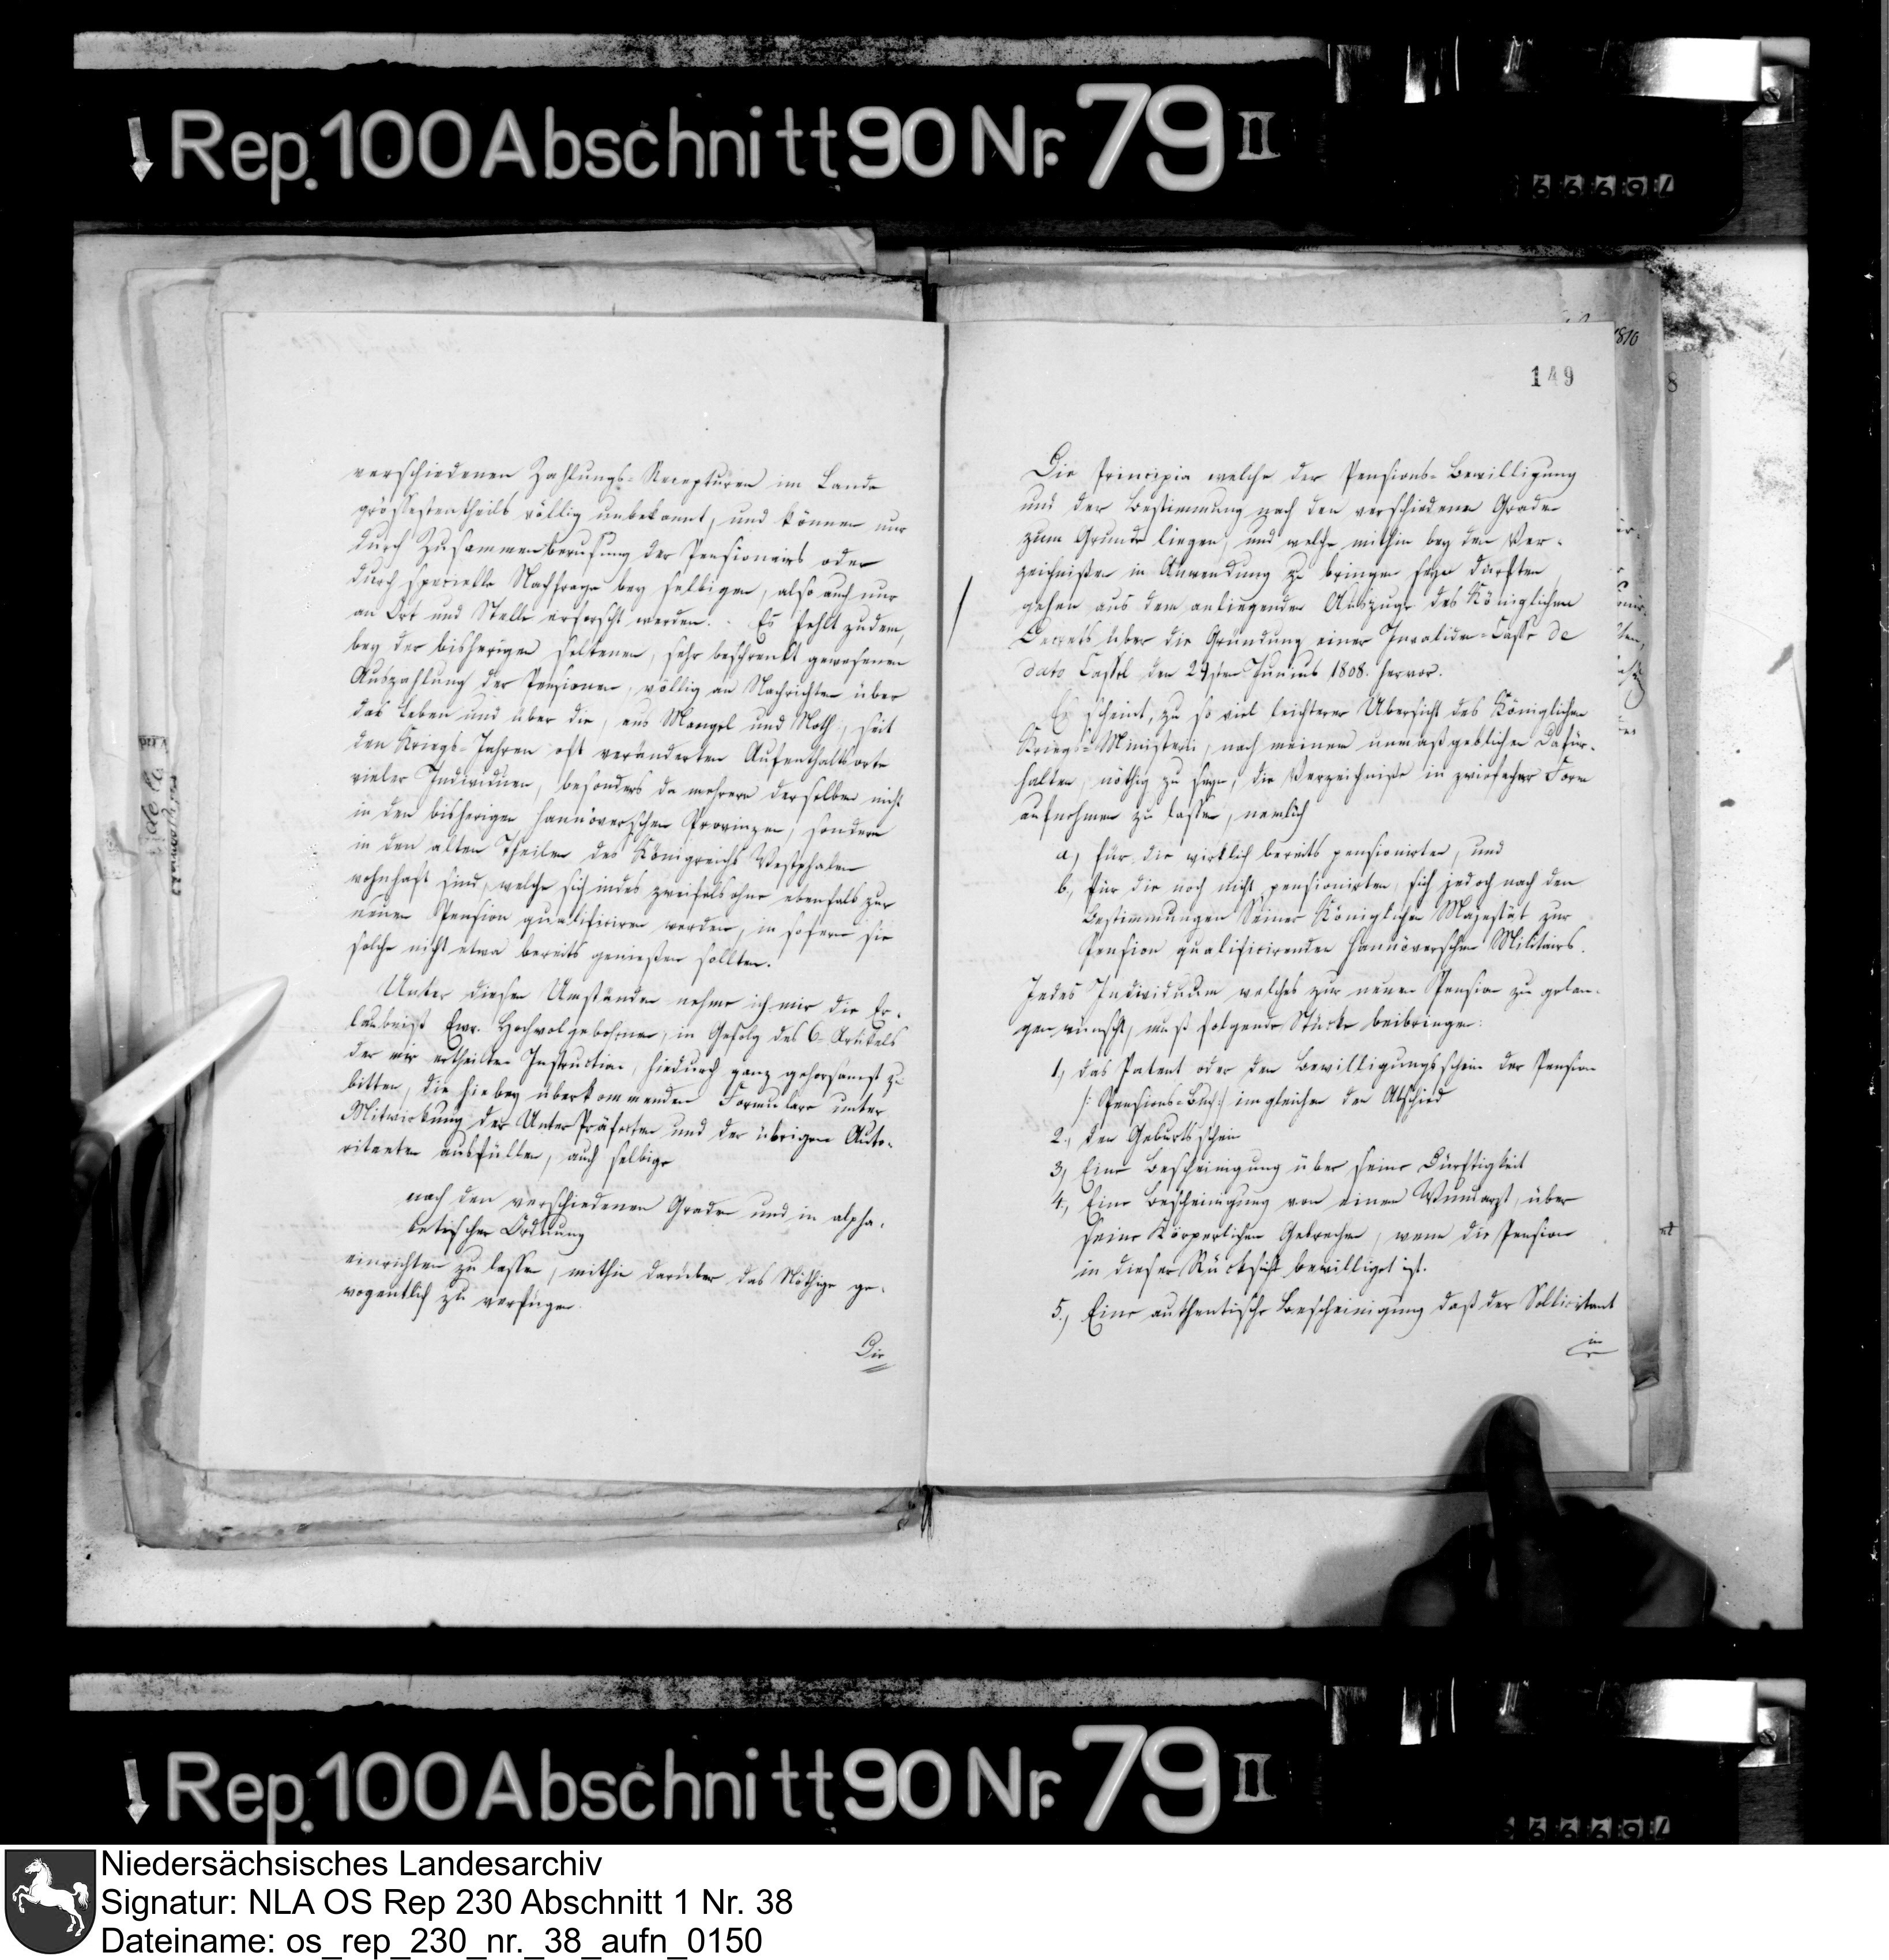 Rep. 100 Abschnitt 90 Nr. 79 II
verschiedenen Zahlungs-Recepturen im Lande
grössestentheils völlig unbekannt, und können nur
durch Zusammenberufung der Pensionairs oder
durch specielle Nachfrage bey selbigen, also auch nur
an Ort und Stelle erforscht werden. - Es fehlt zudem,
bey der bisherigen seltenen, sehr beschrenkt gewesenen
Auszahlung der Pensionen, völlig an Nachrichten über
das Leben und über die, aus Mangel und Noth, seit
den Kriegs-Jahren oft veränderten Aufenthaltsorte
vieler Individuen, besonders da mehrere derselben nicht
in den bisherigen hannöverschen Provinzen, sondern
in den alten Theilen des Königreichs Westphalen
wohnhaft sind, welche sich indes zweifelsohne ebenfals zur
neuen Pension qualificiren werden, in sofern sie
solche nicht etwa bereits genießen sollten.
Unter diesen Umständen nehme ich mir die Er-
laubniß Ewr. Hochwolgebohrnen, in Gefolg des 6. Artikels
der mir ertheilten Instruction, hiedurch ganz gehorsamst zu
bitten, die hiebey überkommenden Formulare unter
Mitwirkung der Unter Präfecten und der übrigen Auto-
ritaeten ausfüllen, auch selbige
nach den verschiedenen Graden und in alpha-
betischer Ordnung
einrichten zu lassen, mithin darüber das Nöthige ge-
wogentlich zu verfügen.
Die
1810
149
8
Die Principia welche der Pensions-Bewilligung
und der Bestimmung nach den verschiedenen Graden
zum Grunde liegen, und welche mithin bey den Ver-
zeichnißen in Anwendung zu bringen seyn dürften
gehen aus dem anliegenden Auszuge des Königlichen
Decrets über die Gründung einer Invaliden-Casse de
dato Cassel den 29sten Junius 1808. hervor.
Es scheint, zu so viel leichterer Übersicht des Königlichen
Kriegs-Ministerii, nach meinem unmaßgeblichen Dafür-
halten, nöthig zu seyn, die Verzeichniße in zwiefacher Form
aufnehmen zu lassen, nemlich
a, für die wirklich bereits pensionirten, und
b, für die noch nicht pensionirten, sich jedoch nach den
Bestimmungen Seiner Königlichen Majestät zur
Pension qualificirenden hannöverschen Militairs.
Jedes Individuum welches zur neuen Pension zu gelan-
gen wünscht, muß folgende Stücke beibringen:
1, das Patent oder den Bewilligungsschein der Pension
/: Pensions-Buch :/ imgleichen den Abschied
2, den Geburtsschein
3, Eine Bescheinigung über seine Dürftigkeit
4, Eine Bescheinigung von einem Wundarzt, über
seine Körperlichen Gebrechen, wenn die Pension
in dieser Rücksicht bewilliget ist.
5, Eine authentische Bescheinigung daß der Sollicitant
in
Rep. 100 Abschnitt 90 Nr. 79 II
Niedersächsisches Landesarchiv
Signatur: NLA OS Rep 230 Abschnitt 1 Nr. 38
Dateiname: os_rep_230_nr._38_aufn_0150